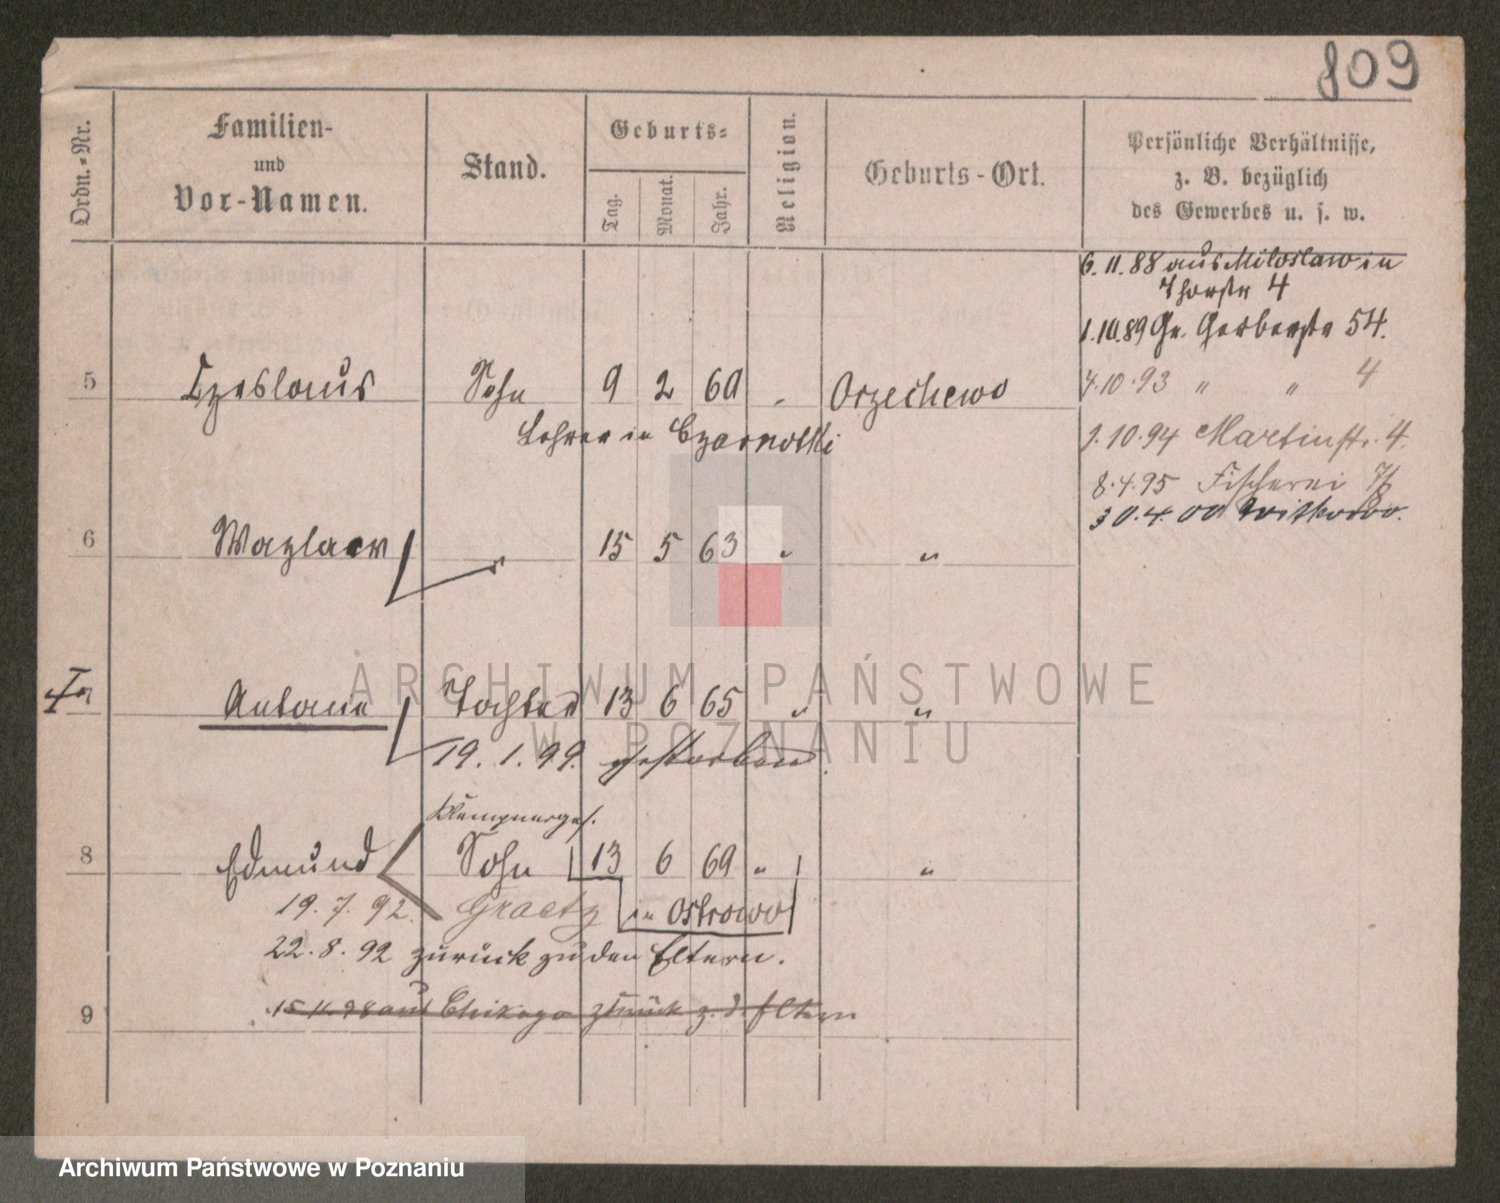 809
Ordn.-Nr.
Familien-
und
Vor-Namen.
Stand.
Geburts-
Tag.
Monat.
Jahr.
Religion.
Geburts-Ort.
Persönliche Verhältnisse,
z. B. bezüglich
des Gewerbes u. s. w.
6.11.88 aus Miloslaw in
Thorstr 4
1.10.89 Gr. Gerberstr 54.
4.10.93 " " 4
5 Czeslaus Sohn 9 2 60 Orzechowo
Lehrer in Czarnotki
9.10.94 Martinstr. 4.
8.4.95 Fischerei
30.4.00 Witkowo.
6 Wazlaw " 15 5 63 " "
Antonie Tochter 13 6 65 " "
19.1.99. gestorben
Klempnerges.
8 Edmund Sohn 13 6 69 " "
19.7.92. Graetz in Ostrowo
22.8.92 zurück zu den Eltern.
9 15.11.98 aus Chikago zurück z. d. Eltern
ARCHIWUM PAŃSTWOWE
W POZNANIU
Archiwum Państwowe w Poznaniu